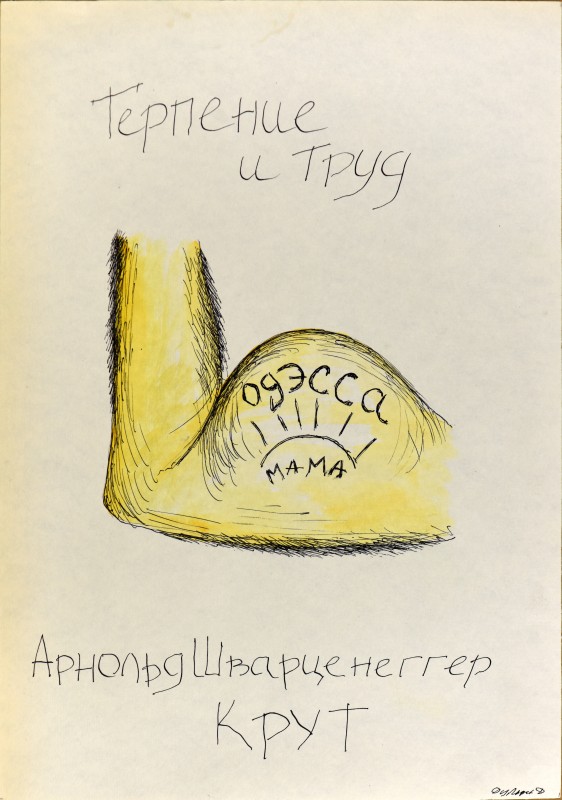 Терпение
и труд
одэсса
мама
Арнольд Шварценеггер
крут